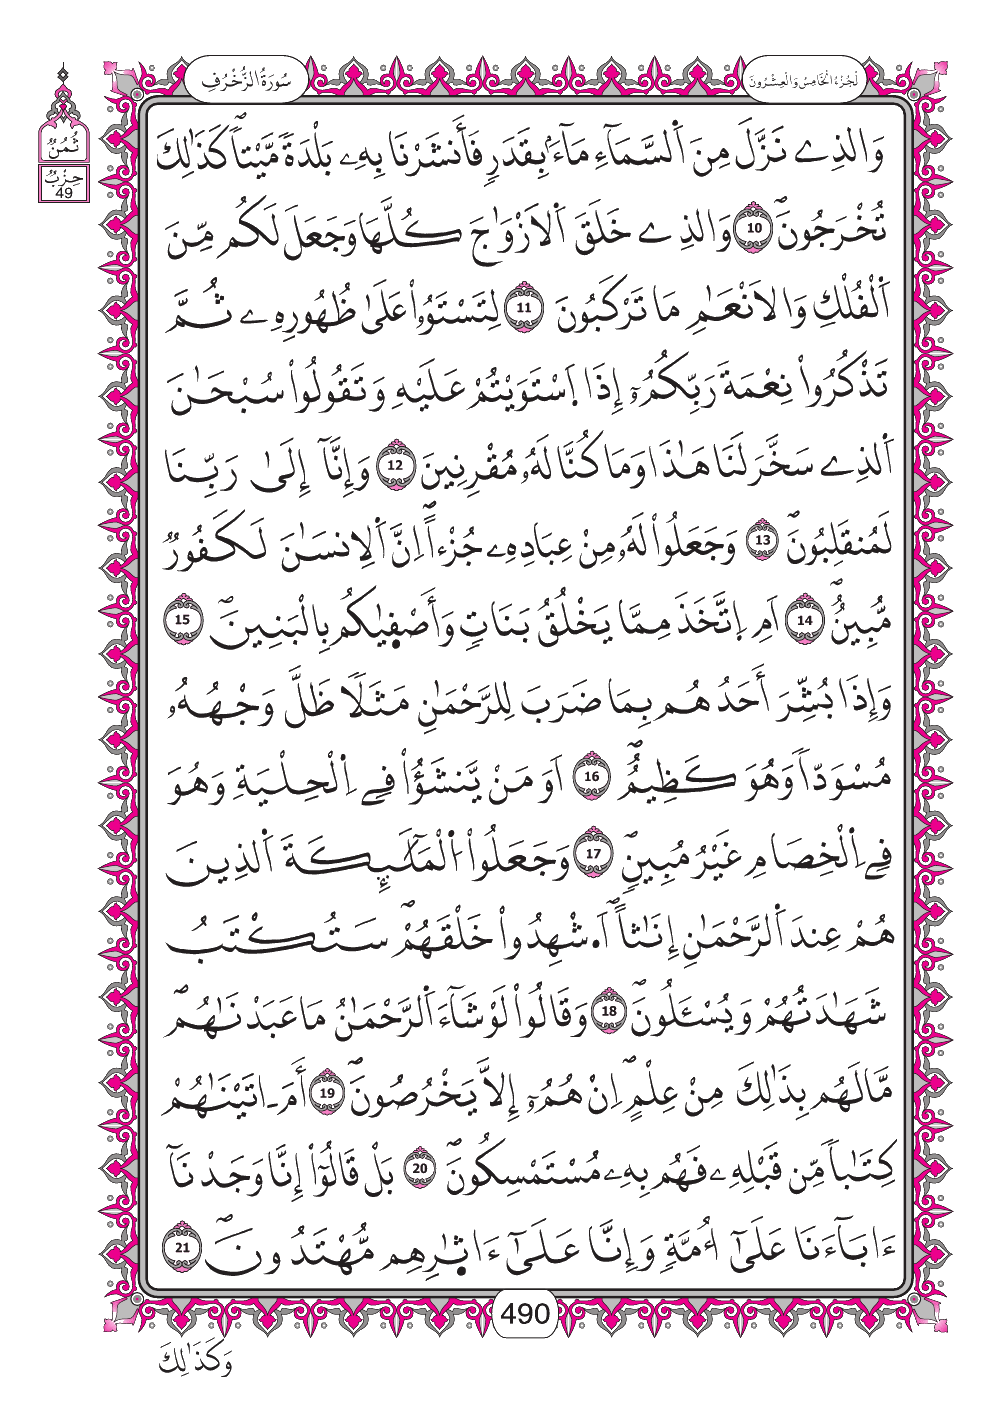 سُورَةُ الزُّخْرُفِ
لَجُزْءُ الْخَامِسُ وَالْعِشْرُونَ
ثُمُنُ
حِزْبُ
49
وَالذِے نَزَّلَ مِنَ اَ۬لسَّمَآءِ مَآءَۢ بِقَدَرٖ فَأَنشَرْنَا بِهِۦ بَلْدَةٗ مَّيْتاٗۖ كَذَٰلِكَ
تُخْرَجُونَۖ 10 وَالذِے خَلَقَ اَ۬لَازْوَٰجَ كُلَّهَا وَجَعَلَ لَكُم مِّنَ
اَ۬لْفُلْكِ وَالَانْعَٰمِ مَا تَرْكَبُونَ 11 لِتَسْتَوُۥاْ عَلَىٰ ظُهُورِهِۦ ثُمَّ
تَذْكُرُواْ نِعْمَةَ رَبِّكُمُۥٓ إِذَا اَ۪سْتَوَيْتُمْ عَلَيْهِ وَتَقُولُواْ سُبْحَٰنَ
اَ۬لذِے سَخَّرَ لَنَا هَٰذَا وَمَا كُنَّا لَهُۥ مُقْرِنِينَ 12 وَإِنَّآ إِلَىٰ رَبِّنَا
لَمُنقَلِبُونَۖ 13 وَجَعَلُواْ لَهُۥ مِنْ عِبَادِهِۦ جُزْءاًۖ اِنَّ اَ۬لِانسَٰنَ لَكَفُورٞ
مُّبِينٌۖ 14 اَمِ اِ۪تَّخَذَ مِمَّا يَخْلُقُ بَنَاتٖ وَأَصْفٜيٰكُم بِالْبَنِينَۖ 15
وَإِذَا بُشِّرَ أَحَدُهُم بِمَا ضَرَبَ لِلرَّحْمَٰنِ مَثَلاٗ ظَلَّ وَجْهُهُۥ
مُسْوَدّاٗ وَهُوَ كَظِيمٌۖ 16 اَوَمَنْ يَّنشَؤُاْ فِے اِ۬لْحِلْيَةِ وَهُوَ
فِے اِ۬لْخِصَامِ غَيْرُ مُبِينٖۖ 17 وَجَعَلُواْ اُ۬لْمَلَٰٓئِكَةَ اَ۬لذِينَ
هُمْ عِندَ اَ۬لرَّحْمَٰنِ إِنَٰثاًۖ اَ۟شْهِدُواْ خَلْقَهُمْۖ سَتُكْتَبُ
شَهَٰدَتُهُمْ وَيُسْـَٔلُونَۖ 18 وَقَالُواْ لَوْ شَآءَ اَ۬لرَّحْمَٰنُ مَا عَبَدْنَٰهُمۖ
مَّا لَهُم بِذَٰلِكَ مِنْ عِلْمٍۖ اِنْ هُمُۥٓ إِلَّا يَخْرُصُونَۖ 19 أَمَ اٰتَيْنَٰهُمْ
كِتَٰباٗ مِّن قَبْلِهِۦ فَهُم بِهِۦ مُسْتَمْسِكُونَۖ 20 بَلْ قَالُوٓاْ إِنَّا وَجَدْنَآ
ءَابَآءَنَا عَلَىٰٓ أُمَّةٖ وَإِنَّا عَلَىٰٓ ءَاثٰٜرِهِم مُّهْتَدُونَۖ 21
490
وَكَذَٰلِكَ